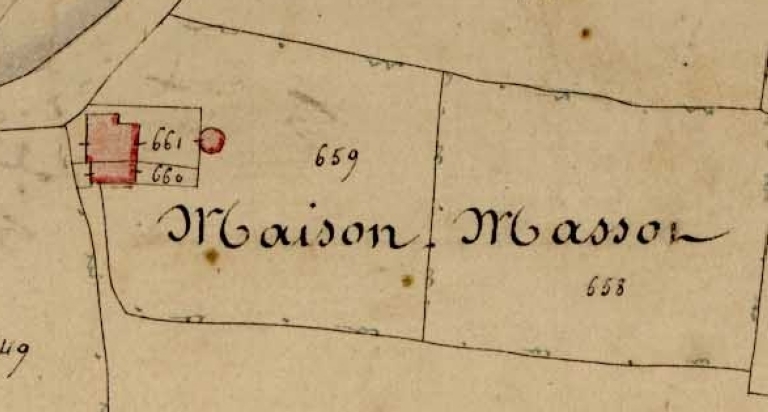 661
659
660
Maison Masson
658
49